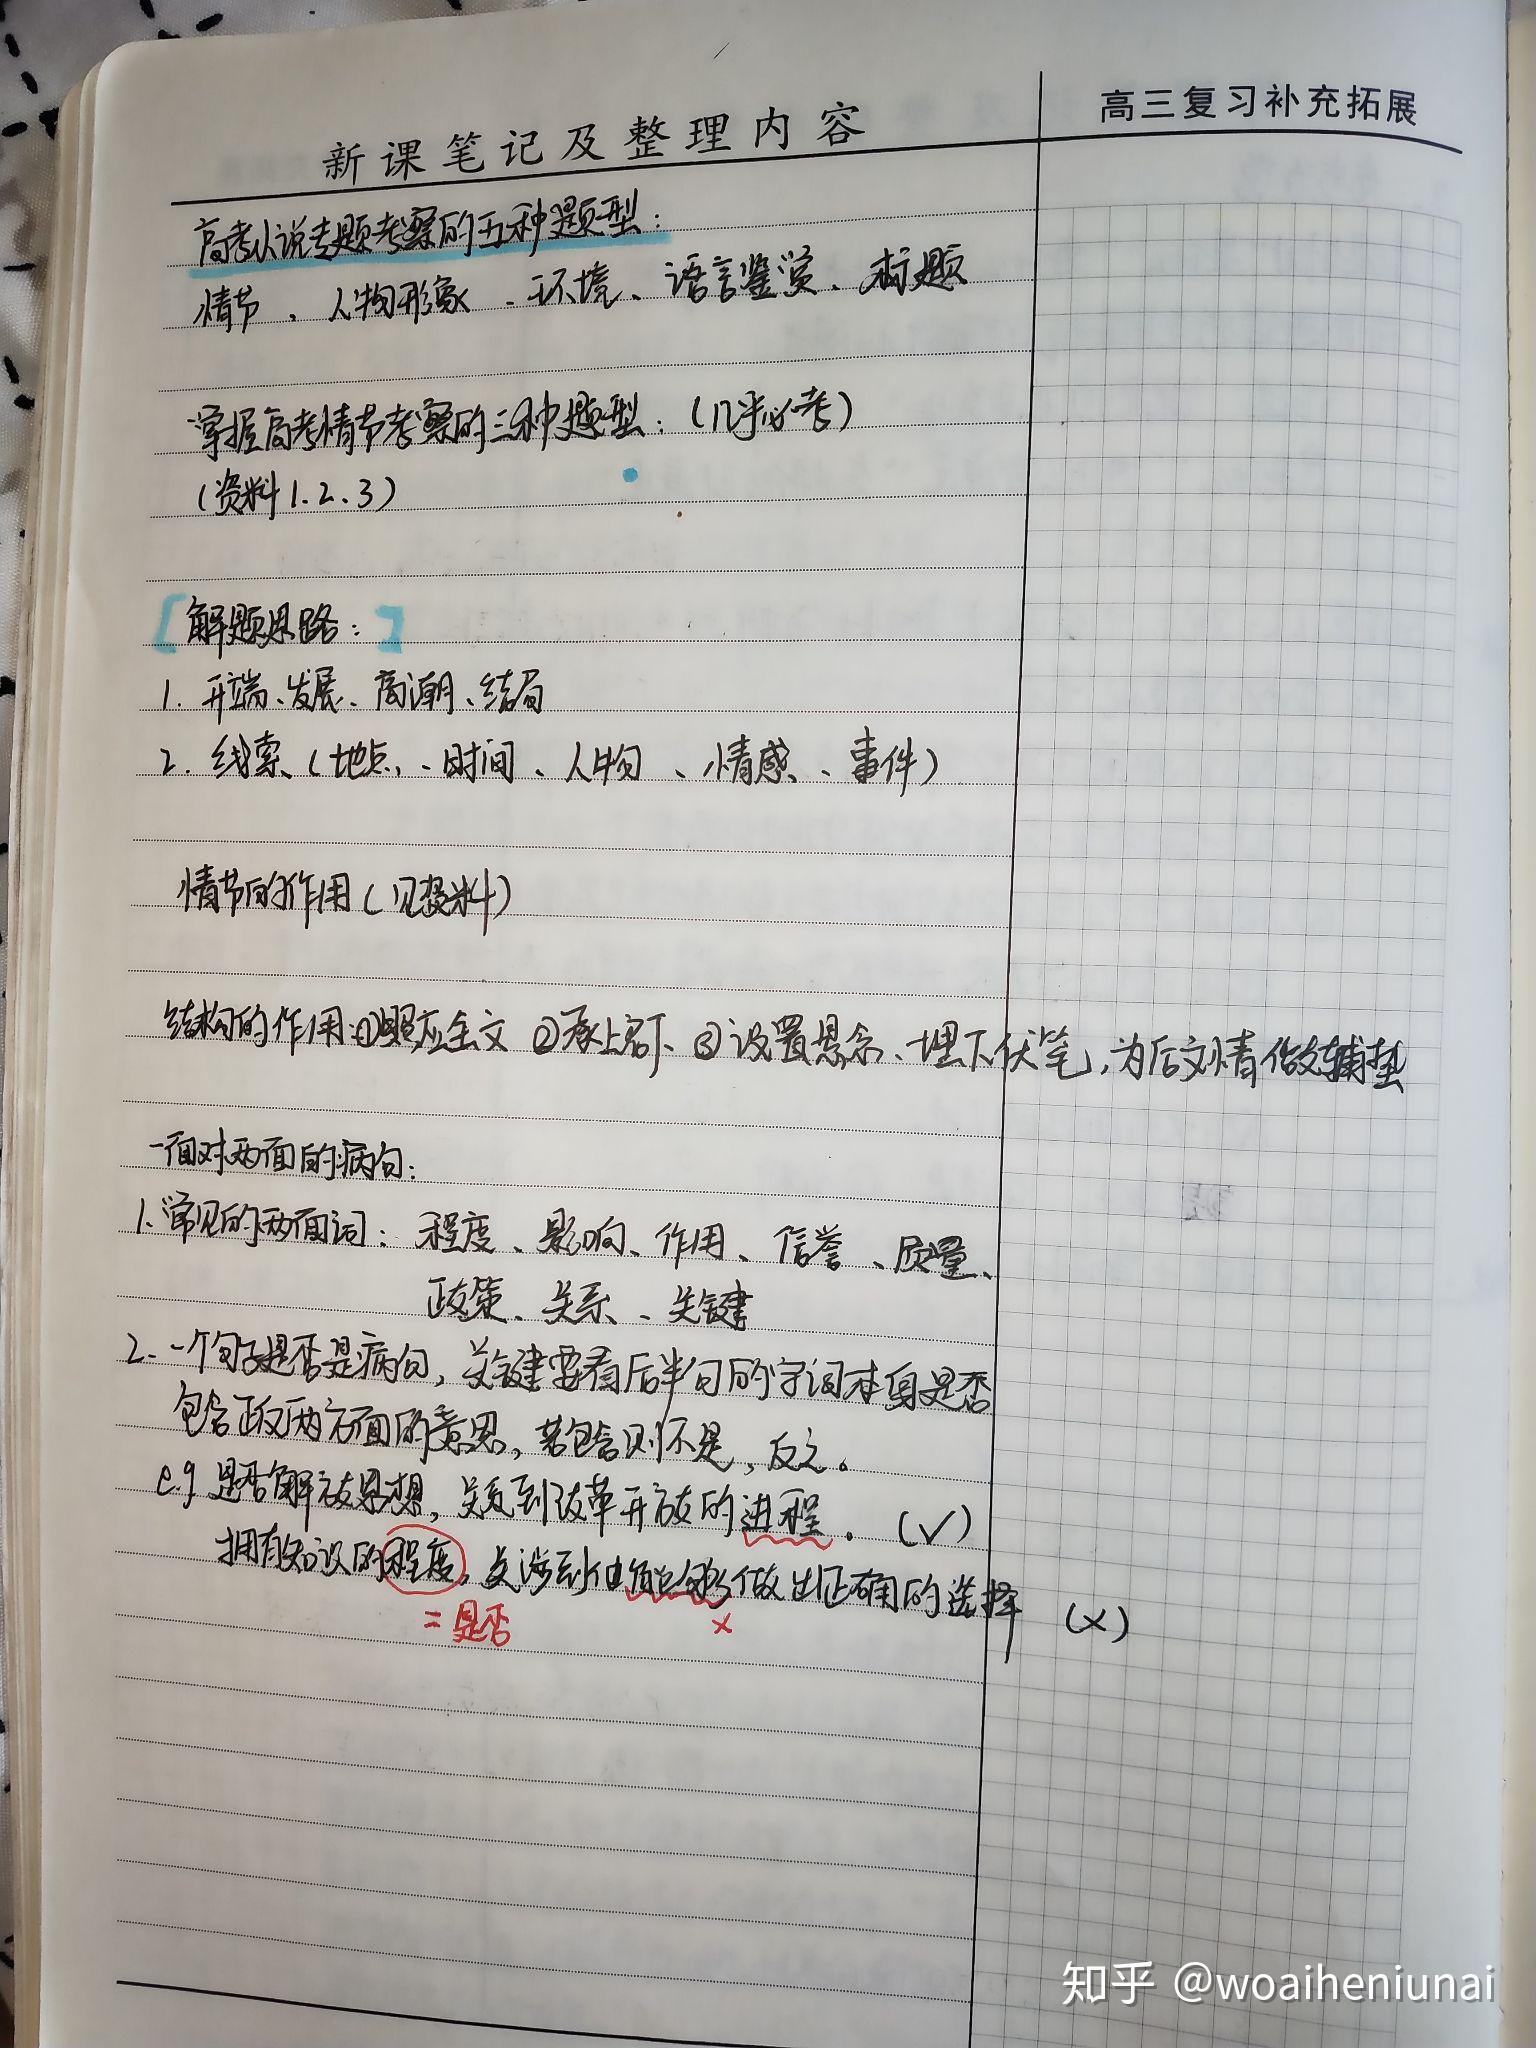 新课笔记及整理内容
高三复习补充拓展
高考小说专题考察的五种题型：
情节、人物形象、环境、语言鉴赏、标题
掌握高考情节考察的三种题型：（几乎必考）
（资料1.2.3）
【解题思路：】
1. 开端、发展、高潮、结局
2. 线索、（地点、、时间、人物、情感、事件）
情节的作用（见资料）
结构的作用：①照应全文 ②承上启下、③设置悬念、埋下伏笔，为后文情做铺垫
一面对两面的病句：
1. 常见的两面词：程度、影响、作用、信誉、质量、
政策、关系、关键
2. 一个句子是否是病句，关键要看后半句的字词本身是否
包含正反两方面的意思，若包含则不是，反之。
e.g 是否解放思想，关系到改革开放的进程。（√）
拥有知识的程度，关涉到他能够做出正确的选择 （×）
=是否 ×
知乎 @woaiheniunai